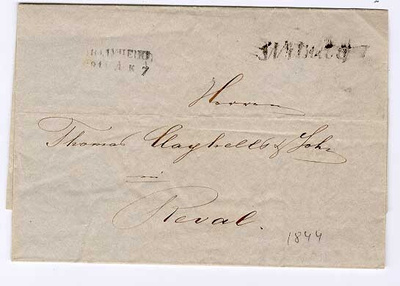 Herren
Thomas Clayhills & Sohn
in
Reval.
1844